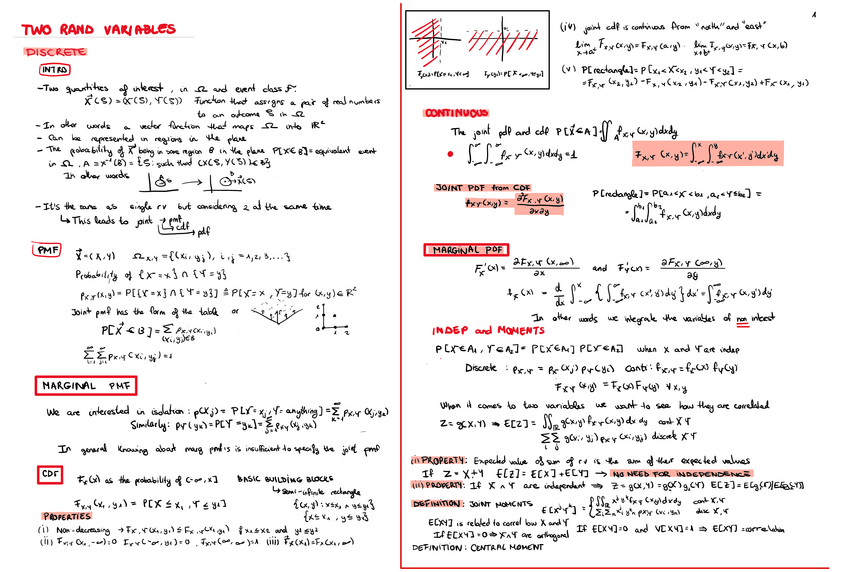 TWO RAND VARIABLES
DISCRETE
INTRO
- Two quantities of interest, in Ω and event class F.
X⃗(S) = (X(S), Y(S)) Function that assigns a pair of real numbers
to an outcome S in Ω
- In other words a vector function that maps Ω into ℝ²
- Can be represented in regions in the plane
- The probability of X⃗ being in some region B in the plane P[X∈B] = equivalent event
in Ω, A = X⁻¹(B) = {S: such that (X(S), Y(S)) ∈ B}
In other words
- It's the same as single rv but considering 2 at the same time
↳ This leads to joint → pmf
cdf
pdf
PMF
X⃗ = (X, Y) Ω x,y = {(xi, yj), i, j = 1, 2, 3, ...}
Probability of {X = x} ∩ {Y = y}
px,y(x,y) = P[{X = x} ∩ {Y = y}] ≜ P[X = x, Y = y] for (x,y) ∈ ℝ²
Joint pmf has the form of the table or
P[X⃗ ∈ B] = Σ px,y(xi,yj)
(xi,yj)∈B
Σ Σ px,y(xi, yj) = 1
MARGINAL PMF
We are interested in isolation: p(xj) = P[X = xj, Y = anything] = Σ px,y(xj, yk)
Similarly: pY(yk) = P[Y = yk] = Σ px,y(xj, yk)
In general knowing about marg pmf is is insufficient to specify the joint pmf
CDF
Fx(x) as the probability of (-∞, x]
BASIC BUILDING BLOCKS
↳ semi-infinite rectangle
Fx,y(x1, y1) = P[X ≤ x1, Y ≤ y1]
{(x,y): x≤x1 ∩ y≤y1}
{x≤x1, y≤y1}
PROPERTIES
(i) Non-decreasing → Fx,y(x1,y1) ≤ Fx,y(x2,y2) if x1≤x2 and y1≤y2
(ii) Fx,y(x1,-∞)=0 Fx,y(-∞,y1)=0, Fx,y(∞,∞)=1 (iii) Fx(x1)=Fx,y(x1,∞)
1
(iv) joint cdf is continous from "north" and "east"
lim Fx,y(x,y) = Fx,y(a,y). lim Fx,y(x,y) = Fx,y(x,b)
x→a⁺
(v) P[rectangle] = P[x1<X<x2, y1<Y≤y2] =
= Fx,y(x2,y2) - Fx,y(x2,y1) - Fx,y(x1,y2) + Fx,y(x1,y1)
CONTINUOUS
The joint pdf and cdf P[X⃗∈A] = ∫∫A fx,y(x,y)dxdy
∫∫ fx,y(x,y)dxdy = 1
Fx,y(x,y) = ∫∫ fx,y(x',y')dx'dy'
JOINT PDF from CDF
fx,y(x,y) = ∂²Fx,y(x,y)
∂x∂y
P[rectangle] = P[a1<X<b1, a2<Y≤b2] =
= ∫∫ fx,y(x,y)dxdy
MARGINAL PDF
Fx'(x) = ∂Fx,y(x,∞) / ∂x and FY'(x) = ∂Fx,y(∞,y) / ∂y
fx(x) = d/dx ∫ {∫ fx,y(x',y')dy'} dx' = ∫ fx,y(x,y')dy'
In other words we integrate the variables of non interest
INDEP and MOMENTS
P[X∈A1, Y∈A2] = P[X∈A1] P[Y∈A2] when X and Y are indep
Discrete: px,y = px(xj) py(yk) Conti: fx,y = fx(x) fy(y)
Fx,y(x,y) = Fx(x) Fy(y) ∀ x,y
When it comes to two variables we want to see how they are correlated
Z = g(X,Y) ⇒ E[Z] = ∫∫ g(x,y) fx,y(x,y)dxdy cont X Y
Σ Σ g(xi, yj) px,y(xi,yj) discrete X Y
(i) PROPERTY: Expected value of sum of rv is the sum of their expected values
If Z = X+Y E[Z] = E[X] + E[Y] → NO NEED FOR INDEPENDENCE
(ii) PROPERTY: If X ∧ Y are independent ⇒ Z = g(X,Y) = g(X) g(Y) E[Z] = E[g(X)] E[g(Y)]
DEFINITION: JOINT MOMENTS
cont X,Y
disc X,Y
E[XY] is related to correl bow X and Y
If E[XY] = 0 ⇒ X ∧ Y are orthogonal
If E[XY]=0 and V[XY]=1 ⇒ E[XY] = correlation
DEFINITION: CENTRAL MOMENT